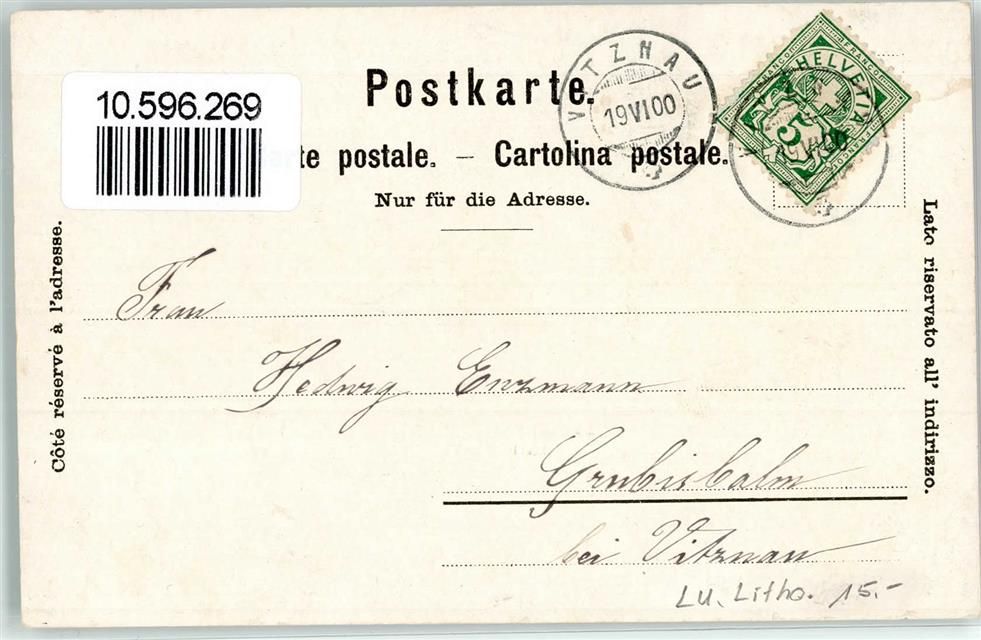 Postkarte.
10.596.269
rte postale. – Cartolina postale.
Nur für die Adresse.
VITZNAU
19 VI 00
FRANCO HELVETIA FRANCO
5
Côté réservé à l'adresse.
Lato riservato all' indirizzo.
Frau
Hedwig Enzmann
Grubisbalm
bei Vitznau
LU. Litho. 15.-